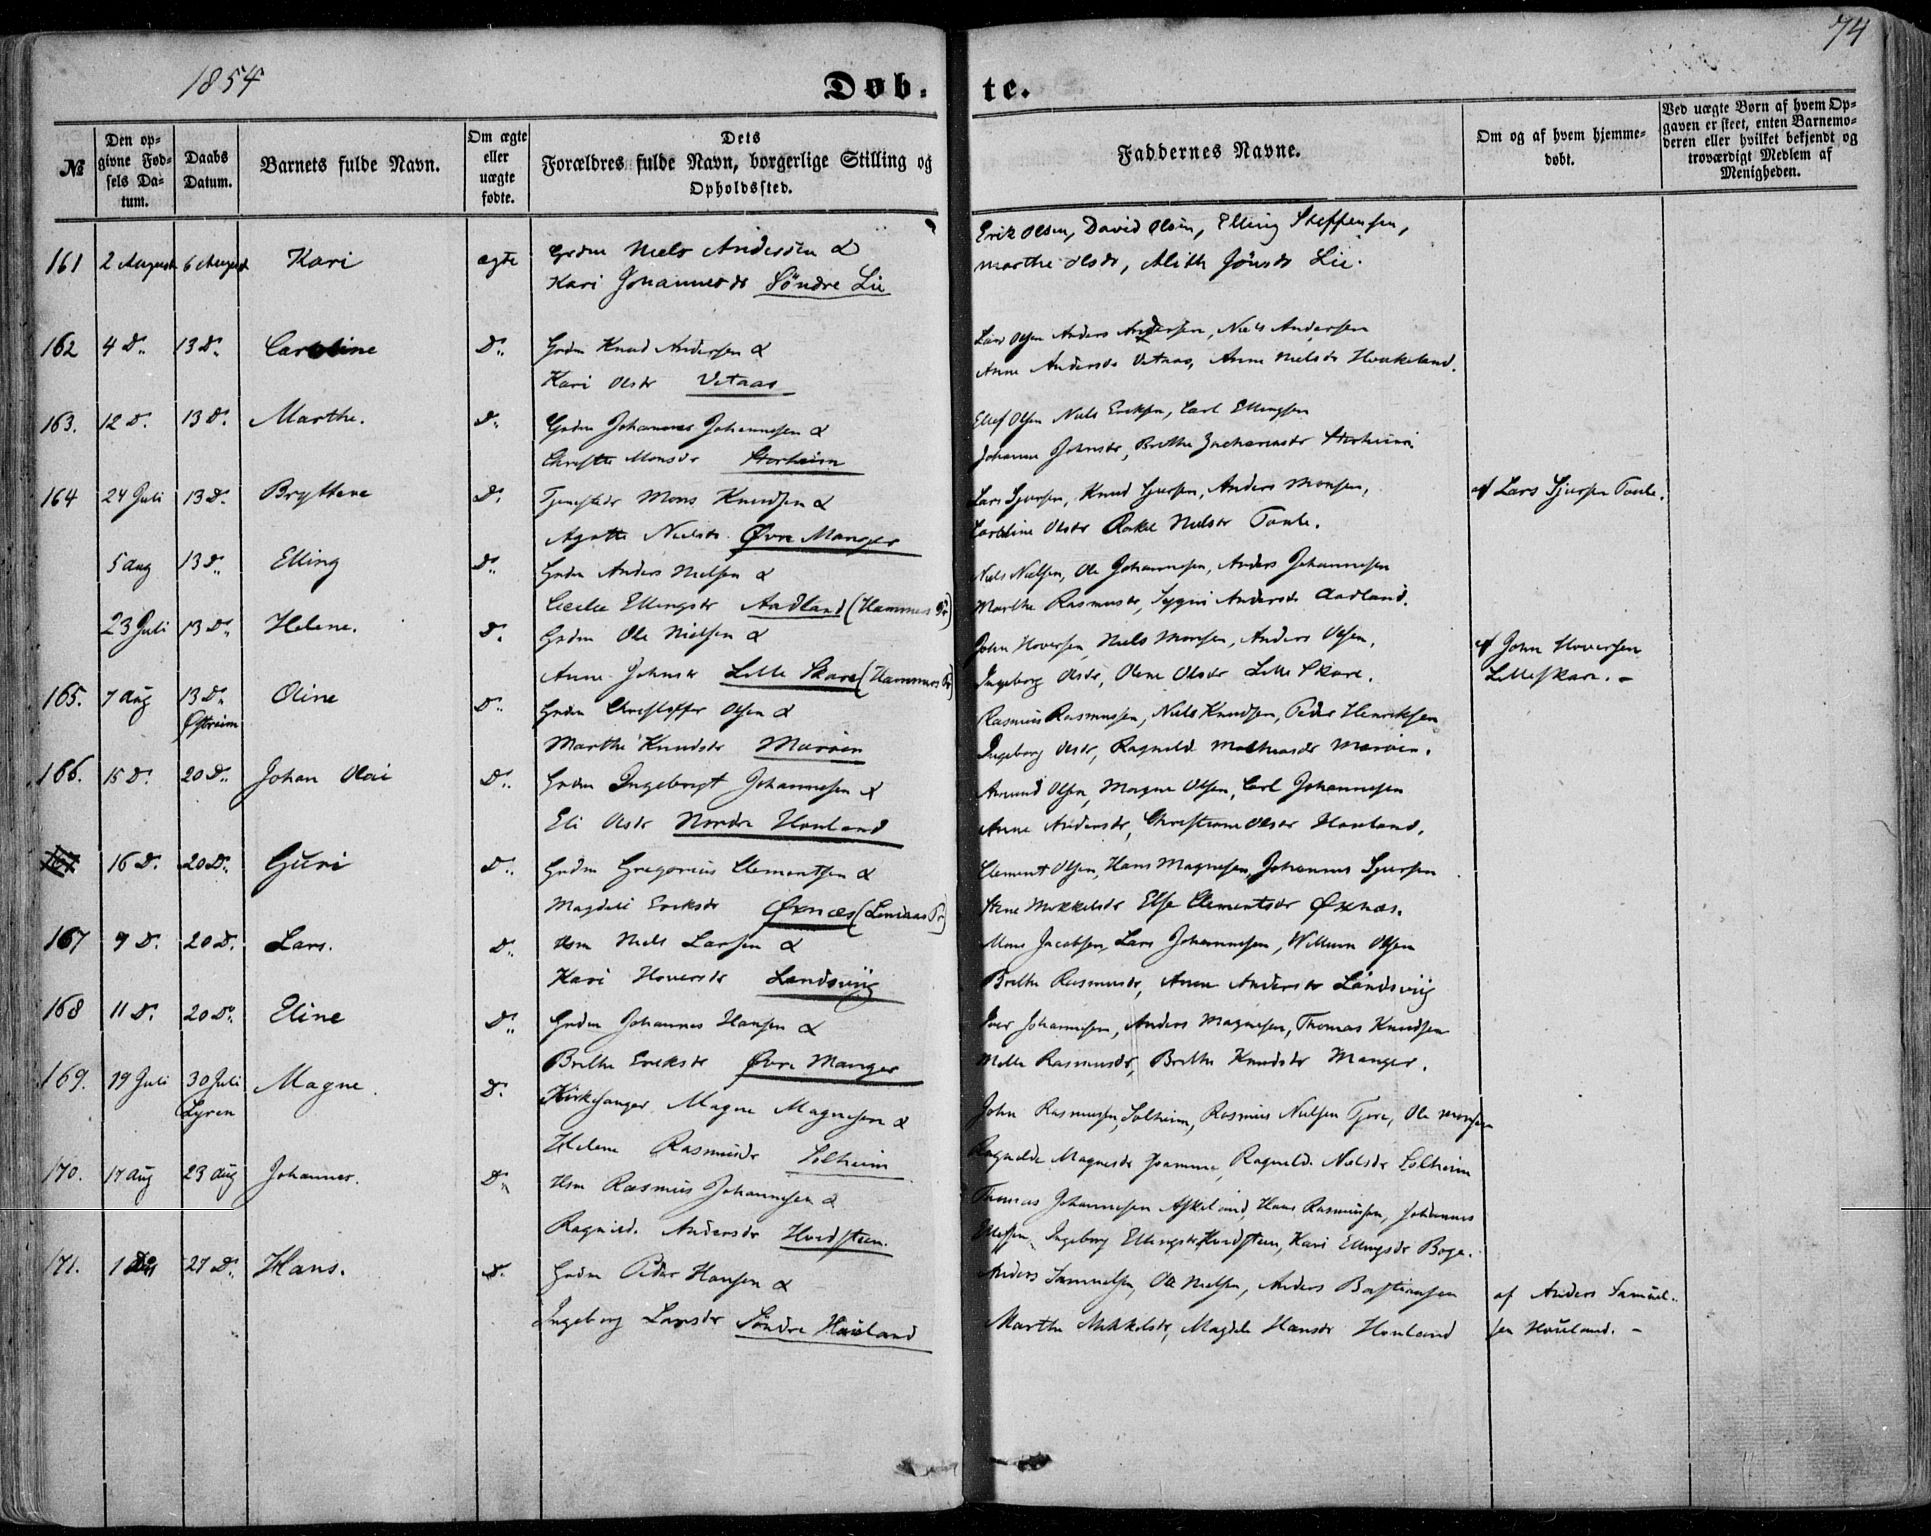 1854
Døb-
te.
74
№
Den op-
givne Fød-
sels Da-
tum.
Daabs
Datum.
Barnets fulde Navn.
Om ægte
eller
uægte
fødte.
Dets
Forældres fulde Navn, borgerlige Stilling og
Opholdssted.
Faddernes Navne.
Om og af hvem hjemme-
døbt.
Ved uægte Børn af hvem Op-
gaven er skeet, enten Barnemo-
deren eller hvilket bekjendt og
troværdigt Medlem af
Menigheden.
161 2 August 6 August Kari ægte Grdm Niels Andersen &
Kari Johannesdr Söndre Lie
Erik Olsen, David Olsen, Elling Steffensen,
Marthe Olsdr, Alith Jönsdr Lie.
162 4 D. 13 D. Caroline D. Grdm Knud Andersen &
Kari Olsdr Vetaas
Lars Olsen Anders Andersen, Niels Andersen
Anne Andersdr Vetaas, Anne Nielsdr Haukeland.
163. 12 D. 13 D. Marthe. D. Grdm Johannes Johannesen &
Christie Monsdr Storheim
Ellef Olsen Niels Ericksen, Carl Ellingsen
Johanne Johnsdr, Brithe Zachariasdr Storheim
164 24 Juli 13 D. Bryttene D. Mons Knudsen &
Agathe Nielsdr. Øvre Manger
Lars Sjursen, Knud Sjursen, Anders Monsen,
Caroline Olsdr Rakel Nielsdr Toule.
af Lars Sjursen Toule.
5 Aug 13 D. Elling D. Grdm Anders Nielsen &
Cecilie Ellingsdr Aadland (Hammers Pr)
Niels Nielsen, Ole Johannesen, Anders Johannesen
Marthe Rasmusdr, Andersdr Aadland.
23 Juli 13 D. Helene. D. Grdm Ole Nielsen &
Anne Johnsdr Lille Skare (Hammers Pr)
John Hoversen, Niels Monsen, Anders Olsen,
Ingeborg Olsdr, Olene Olsdr Lille Skare.
af John Hoversen
Lilleskare. -
165. 7 Aug 13 D. Oline D. Grdm Christoffer Olsen &
Østreim
Marthe Knudsdr Maröen
Rasmus Rasmussen, Niels Knudsen, Peder Henriksen
Ingeborg Olsdr, Ragnilde Mathiasdr Maröen.
166. 15 D. 20 D. Johan Olai D. Grdm Ingebrigt Johannesen &
Eli Olsdr Nordre Houland
Amund Olsen, Magne Olsen, Carl Johannesen
Anne Andersdr, Christiane Olsdr Houland.
167 16 D. 20 D. Guri D. Grdm Gregorius Clementsen &
Magdeli Ericksdr Øxnæs (Lindaas Pr)
Clement Olsen, Hans Magnesen, Johannes Sjursen
Stine Mikkelsdr Else Clementsdr Øxnæs.
167 9 D. 20 D. Lars. D. Hsm Niels Larsen &
Kari Hoversdr Landsviig
Mons Jacobsen, Lars Johannesen, Willum Olsen
Brithe Rasmusdr, Anne Andersdr Landsviig
168 11 D. 20 D. Eline D. Grdm Johannes Hansen &
Brithe Ericksdr Øvre Manger
Iver Johannesen, Anders Magnesen, Thomas Knudsen
Mille Rasmusdr, Brithe Knudsdr Manger.
169. 19 Juli 30 Juli Magne. D. Kirkesanger Magne Magnesen &
Lyren
Helene Rasmusdr Solheim
John Rasmussen Solheim, Rasmus Nielsen Tjore, Ole Monsen
Ragnilde Magnesdr Qvamme, Ragnilde Nielsdr Solheim
170. 17 Aug 23 Aug Johannes. D. Hsm Rasmus Johannesen &
Ragnild. Andersdr Hordsteen.
Thomas Johannesen Askeland, Hans Rasmusen, Johannes
Ellefsen, Ingeborg Ellingsdr Hordsteen, Kari Ellingsdr Boge.
171. 1 D. 27 D. Hans. D. Grdm Peder Hansen &
Ingeborg Larsdr Söndre Houland
Anders Samuelsen, Ole Nielsen, Anders Bastiansen
Marthe Mikkelsdr, Magdele Hansdr Houland
af Anders Samuel-
sen Houland. -